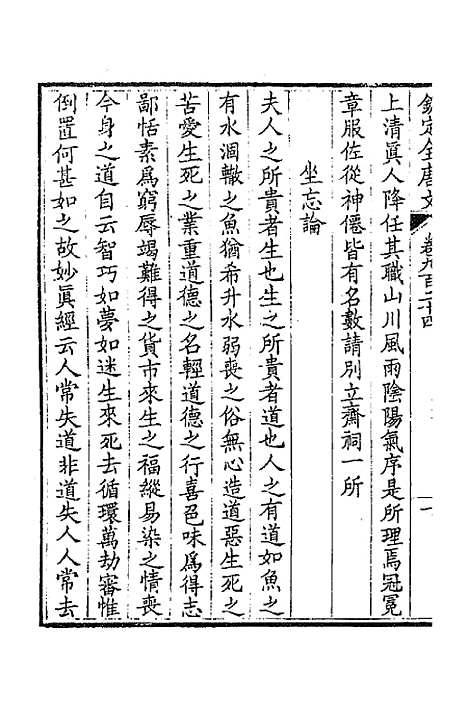 欽定全唐文 卷九百二十四 一
上清眞人降任其職山川風雨陰陽氣序是所理焉冠冕
章服佐從神僊皆有名數請別立齋祠一所
坐忘論
夫人之所貴者生也生之所貴者道也人之有道如魚之
有水涸轍之魚猶希升水弱喪之俗無心造道惡生死之
苦愛生死之業重道德之名輕道德之行喜邑味爲得志
鄙恬素爲窮辱竭難得之貨市來生之福縱易染之情喪
今身之道自云智巧如夢如迷生來死去循環萬劫審惟
倒置何甚如之故妙眞經云人常失道非道失人人常去